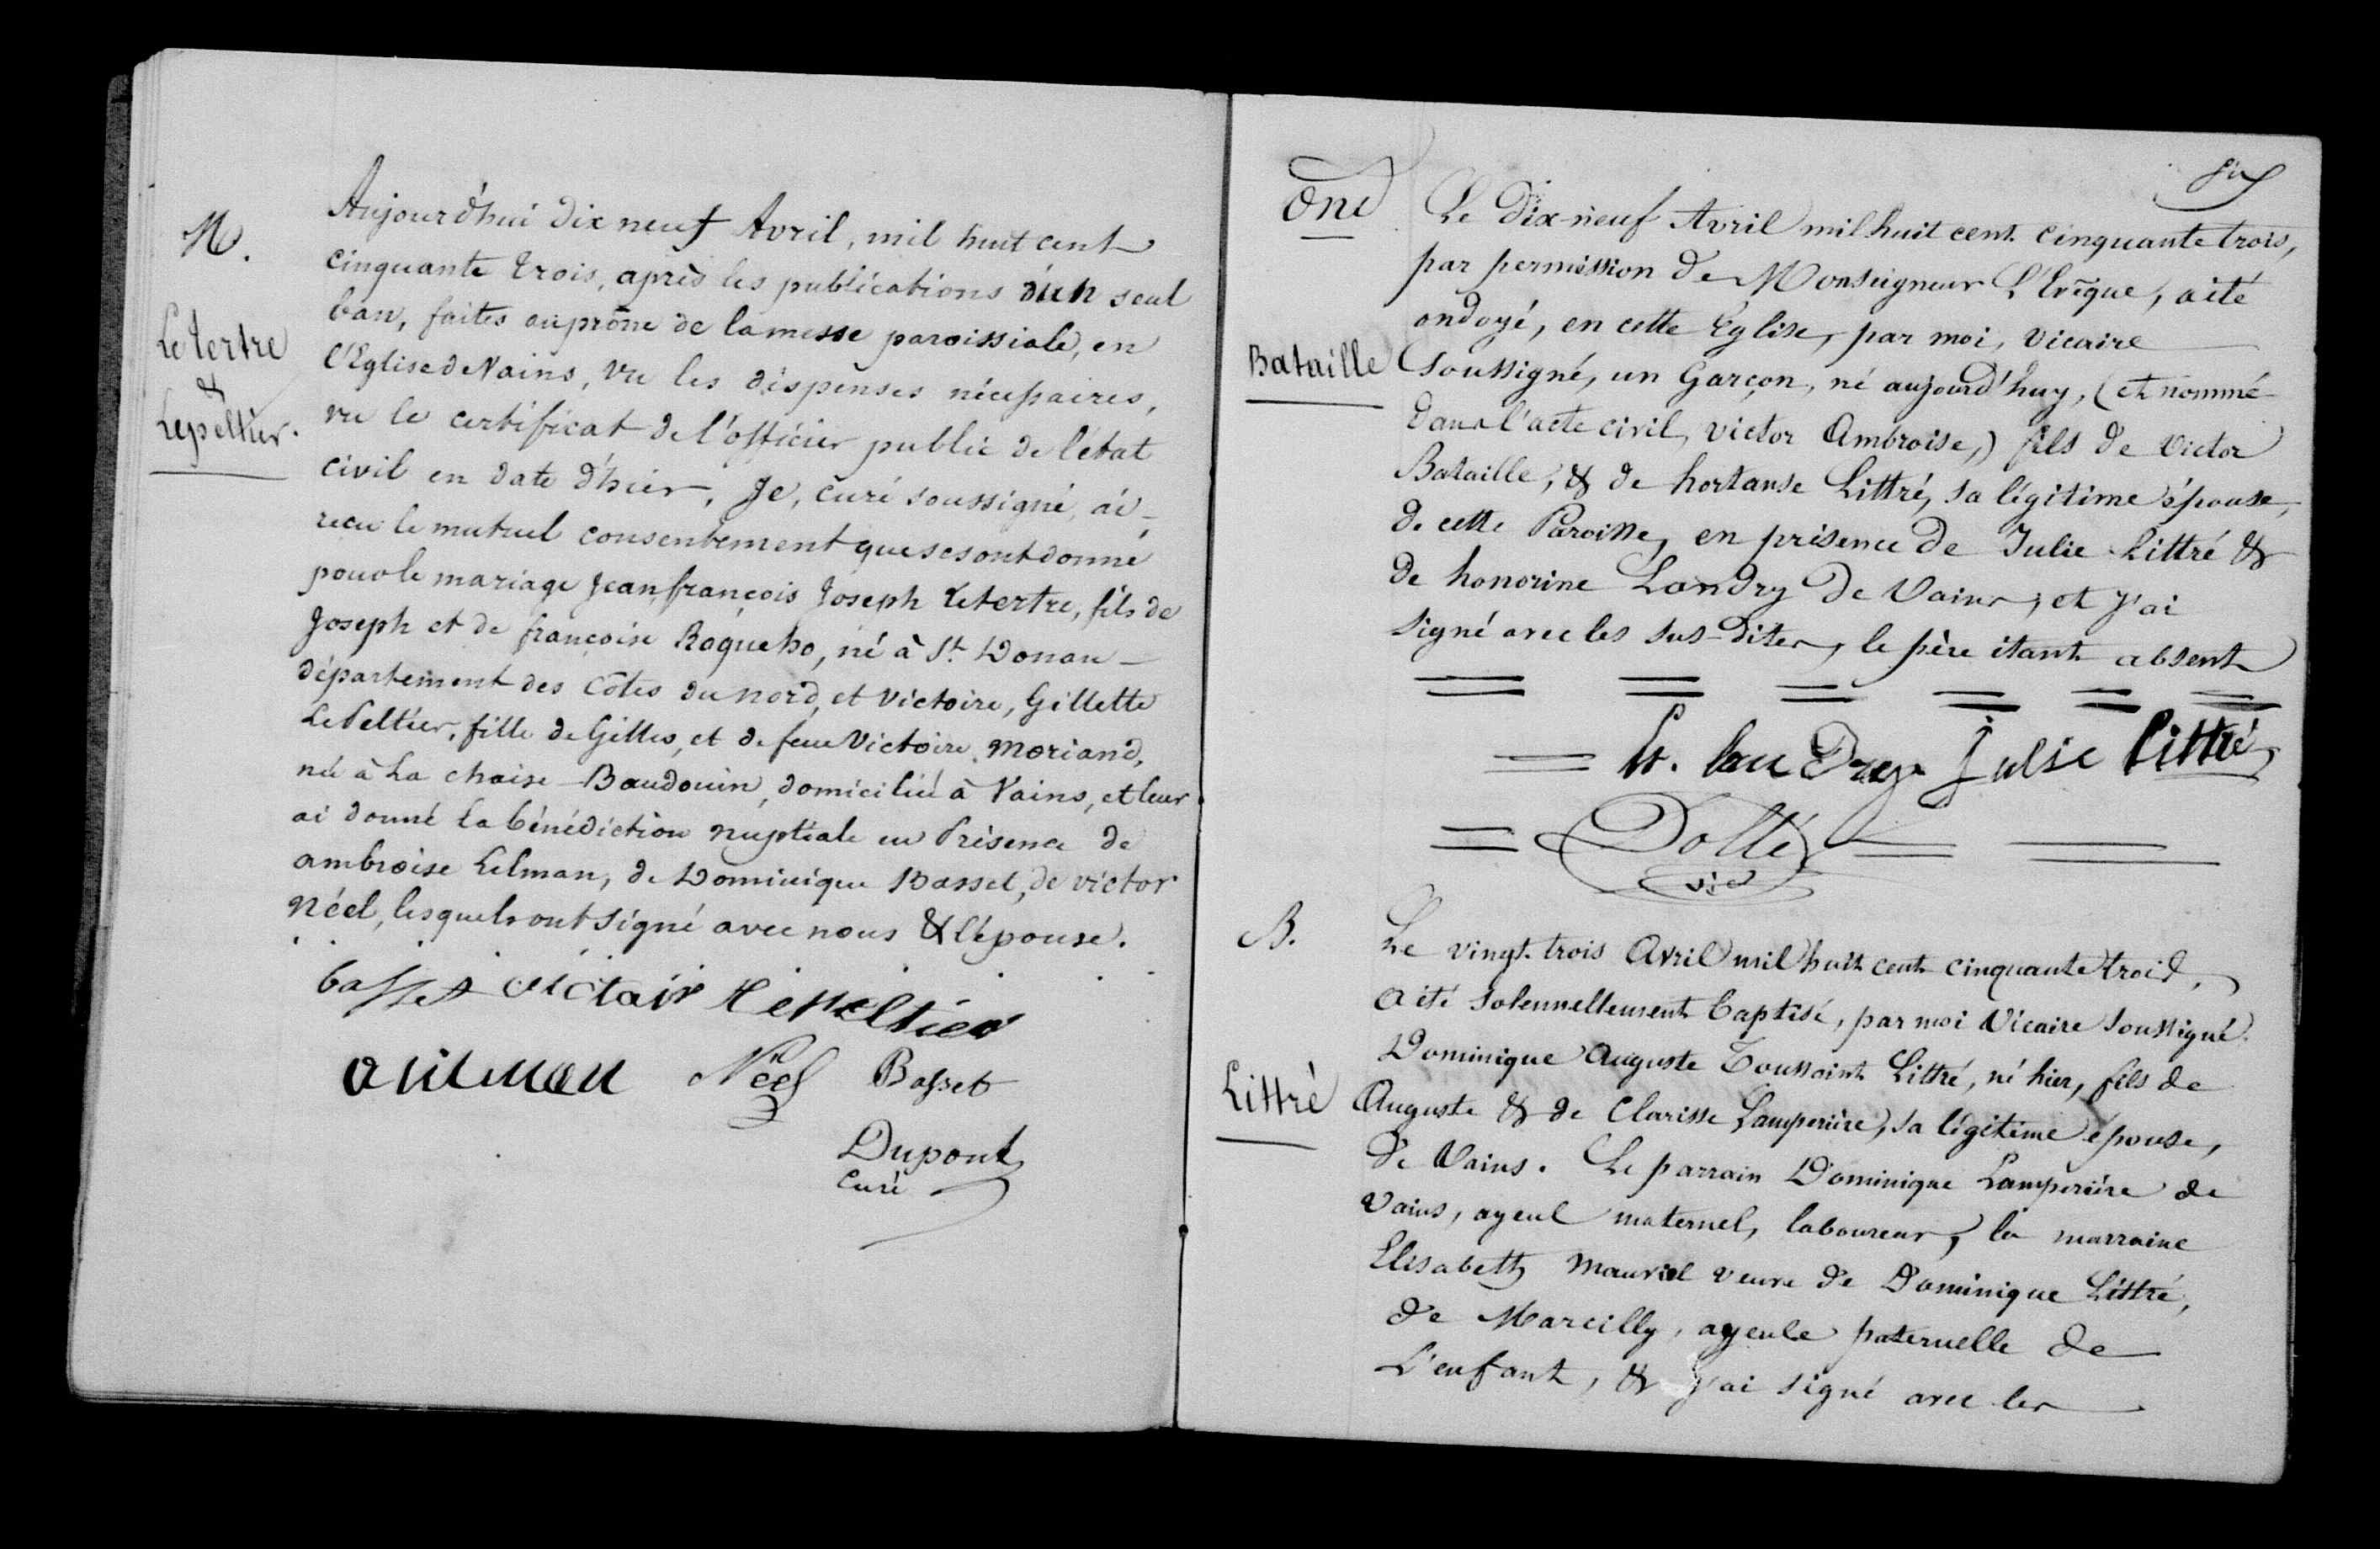 M.
Le tertre
&
Lepeltier.
Aujourd'hui dix neuf Avril, mil huit cent
cinquante trois, après les publications d'un seul
ban, faites au prône de la messe paroissiale, en
l'Eglise de Vains, vu les dispenses nécessaires,
vu le certificat de l'officier public de l'état
civil en date d'hier, Je, curé soussigné, ai -
recu le mutuel consentement que se sont donné
pour le mariage Jean françois Joseph Letertre, fils de
Joseph et de françoise Raqueho, né à St. Donan -
département des côtes du nord, et Victoire, Gillette
LePeltier, fille de Gilles, et de feue Victoire Moriand,
née à La chaise-Baudouin, domiciliée à Vains, et leur
ai donné la bénédiction nuptiale en Présence de
ambroise Lelman, de Dominique Basset, de victor
Néel, lesquels ont signé avec nous & l'épouse.
basset victoir Lepeltier
Néel Basset
Dupont
Curé
Ond
Bataille
Le Dix-neuf Avril mil huit cent cinquante trois,
par permission de Monseigneur L'Evêque, a été
ondoyé, en cette Église, par moi, vicaire
soussigné, un Garçon, né aujourd'huy, (et nommé
dans l'acte civil, victor Ambroise,) fils de Victor
Bataille, & de hortanse Littré, sa légitime épouse,
de cette Paroisse, en présence de Julie Littré &
de honorine Landry de Vains; et j'ai
signé avec les sus-dites, le père étant absent
H. landry Julie littré
Dollé
vic
B.
Littré
Le vingt-trois Avril mil huit cent cinquante trois,
a été solennellement baptisé, par moi Vicaire soussigné.
Dominique Auguste Toussaint Littré, né hier, fils de
Auguste & de Clarisse Lamperière, sa légitime épouse,
de Vains. Le parrain Dominique Lamperière de
Vains, ayeul maternel, laboureur, la marraine
Elisabeth Mauviel veuve de Dominique Littré,
de Marcilly, ayeule paternelle de
L'enfant, & j'ai signé avec les